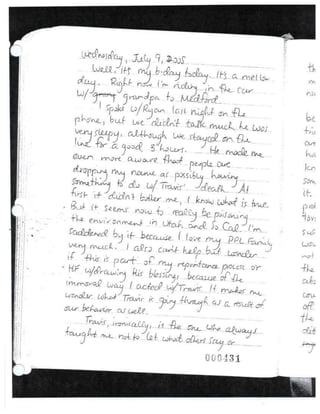 Wednesday, July 9, 2008
Well, it's my b-day today. It's a mellow
day. Right now I'm riding in the car
w/ grandpa to Medford.
I spoke w/Ryan last night on the
phone, but we didn't talk much. He was
very sleepy, although we stayed on the
line for a good 3 hours. He made me
even more aware that people are
dropping my name as possibly having
something to do w/ Travis' death. At
first it didn't bother me, I know what is true.
But it seems now to really be poisoning
the environment in Utah and So Cal. I'm
saddened by it because I love my PPL Family
very much. I also can't help but wonder
if this is part of my repentance process or
HF w/drawing His blessings because of the
immoral way I acted w/Travis. It makes me
wonder what Travis is going through as a result of
our behavior as well.
Travis, ironically, is the one who always
taught me not to let what others say or
000431